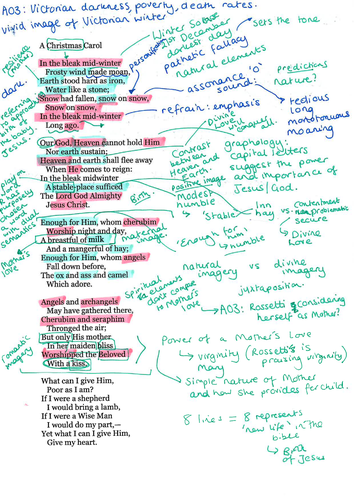 A03: Victorian darkness, poverty, death rates.
vivid image of Victorian winter
A Christmas Carol
In the bleak mid-winter
Frosty wind made moan,
Earth stood hard as iron,
Water like a stone;
Snow had fallen, snow on snow,
Snow on snow,
In the bleak mid-winter
Long ago.
Our God, Heaven cannot hold Him
Nor earth sustain;
Heaven and earth shall flee away
When He comes to reign:
In the bleak midwinter
A stable-place sufficed
The Lord God Almighty
Jesus Christ.
Enough for Him, whom cherubim
Worship night and day,
A breastful of milk
And a mangerful of hay;
Enough for Him, whom angels
Fall down before,
The ox and ass and camel
Which adore.
Angels and archangels
May have gathered there,
Cherubim and seraphim
Thronged the air;
But only His mother
In her maiden bliss
Worshipped the Beloved
With a kiss.
What can I give Him,
Poor as I am?
If I were a shepherd
I would bring a lamb,
If I were a Wise Man
I would do my part,—
Yet what I can I give Him,
Give my heart.
Winter
21st December
darkest day
sets the tone.
pathetic fallacy
natural elements
assonance 'o'
sound:
predictions
nature?
refrain: emphasis
tedious
long
monotonous
moaning
dark.
referring
the baby
Jesus
contrast
between
Heaven and
earth.
Divine
Love
graphology:
capital letters
suggest the power
and importance of
Jesus/God.
positive image
Modest
humble
'Stable'
Inn
hay vs
secure
Divine
Love
Birth
maternal
image
'Enough for Him'
humble
natural
imagery vs divine
imagery
juxtaposition.
Spiritual
elements
dont compare
to Mother's
love
A03: Rossetti considering
herself as Mother?
Mother's
love
romantic
imagery
Power of a Mother's Love
virginity (Rossetti is
praising virginity)
Mary
Simple nature of Mother
and how she provides for child.
8 lines = 8 represents
'new life' in the
bible
Birth
of Jesus